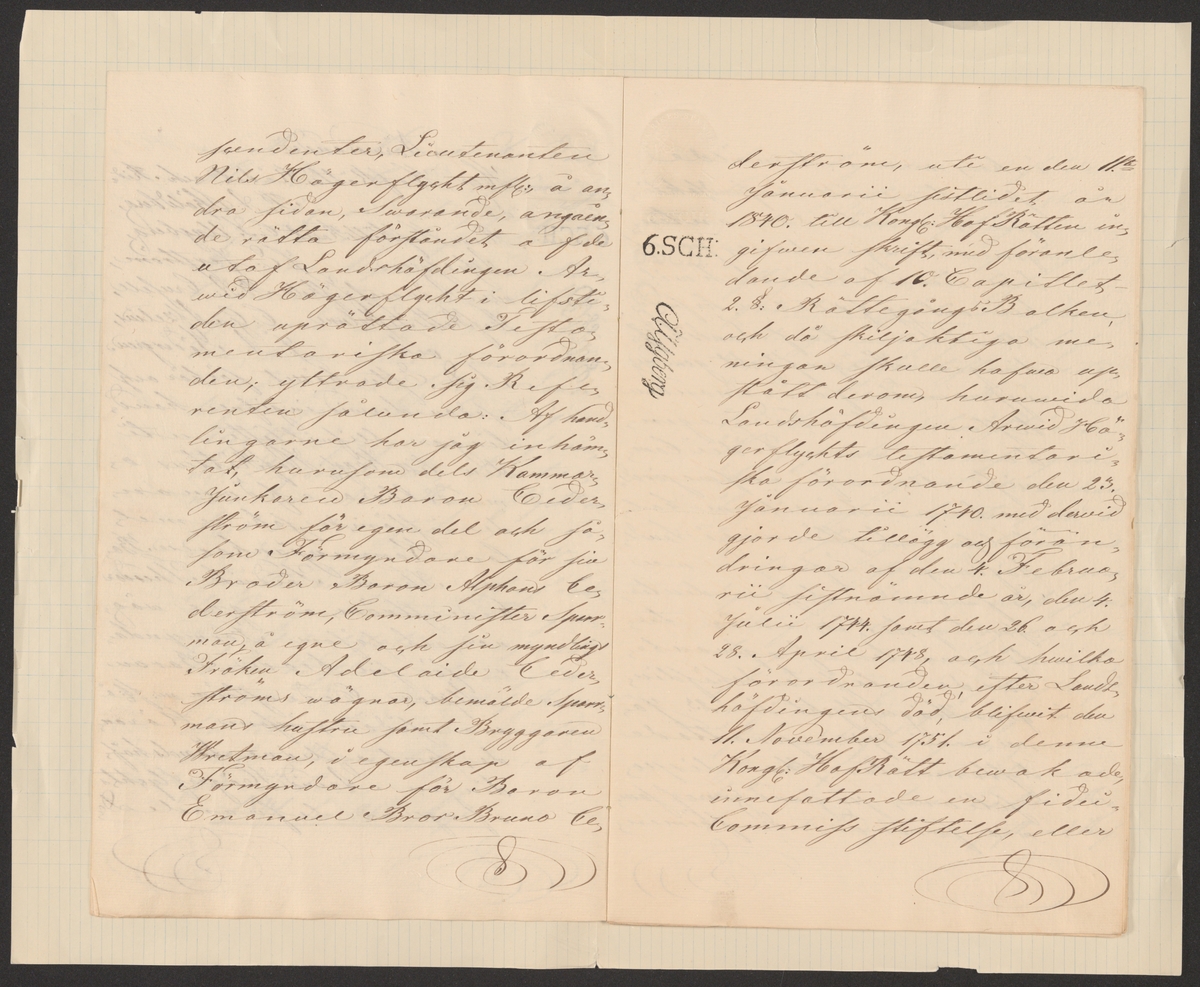 pondenter, Lieutenanten
Nils Hägerflycht mfl:, å an,
dra sidan, Swarande, angåen,
de rätta förståndet af de
utaf Landshöfdingen Ar,
wid Hägerflycht i lifsti,
den uprättade Testa,
mentariska förordnan,
den; yttrade sig Refe,
renten sålunda: Af hand,
lingarne har jag inhäm,
tat, hurusom dels Kammar,
Junkaren Baron Ceder,
ström för egen del och så,
som Förmyndare för sin
Broder Baron Alphons Ce,
derström, Comminister Sparr,
man, å egne och sin myndlings
Fröken Adelaide Ceder,
ströms wägnar, bemälde Sparr,
mans hustru samt Bryggaren
Wretman, i egenskap af
Förmyndare för Baron
Emanuel Bror Bruno Ce,
derström, uti en den 11te
Januarii sistlidet år
1840. till Kongl: HofRätten in,
gifwen skrift, med föranle,
dande af 10. Capitlet
2. §: RättegångsBalken,
och då skiljaktiga me,
ningar skulle hafwa up,
stått derom, huruwida
Landshöfdingen Arwid Hä,
gerflychts testamentari,
ska förordnande den 23.
Januarii 1740. med derwid
gjorde tillägg och förän,
dringar af den 4. Februa,
rii sistnämnde år, den 4.
Julii 1744. samt den 26. och
28. April 1748, och hwilka
förordnanden, efter Lands,
höfdingens död, blifwit den
11. November 1751. i denne
Kongl: HofRätt bewakade,
innefattade en fidei-
Commiss stiftelse, eller
6.SCH: